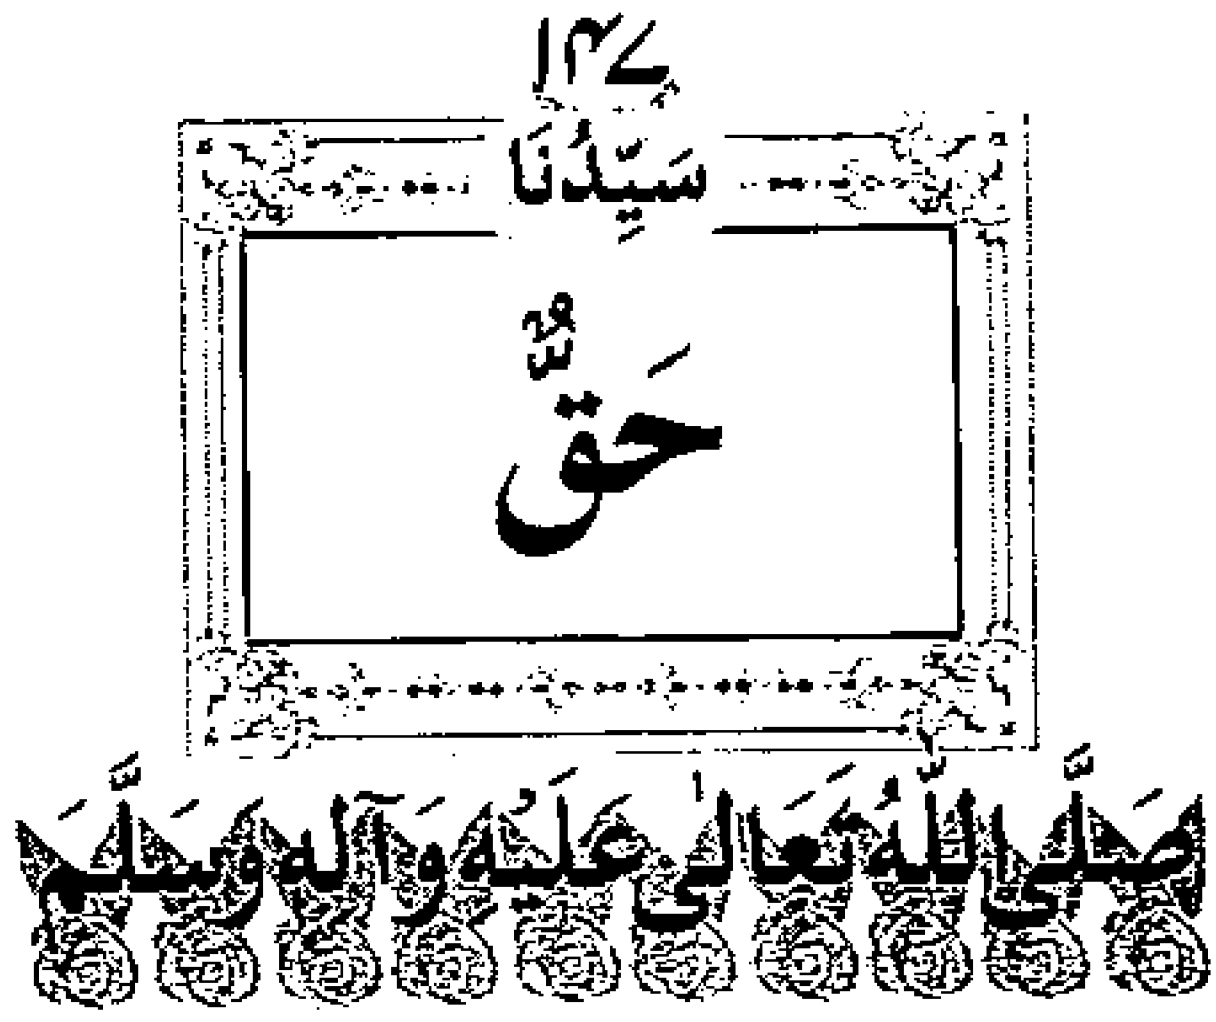 ۱۴۷
سَيِّدُنَا
حَقٌّ
صَلَّى اللّٰهُ تَعَالٰى عَلَيْهِ وَآلِهٖ وَسَلَّمَ